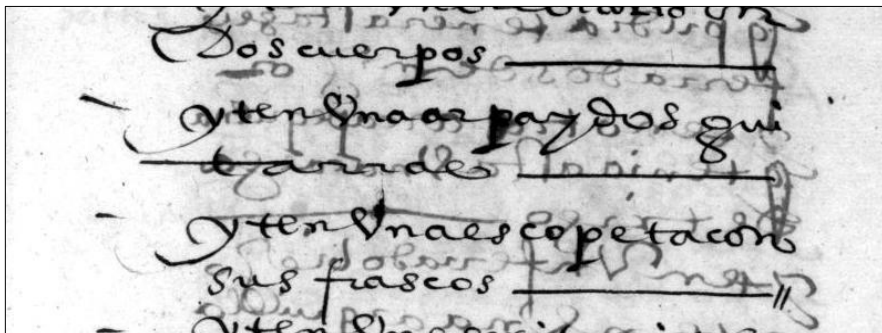 Dos cuerpos
yten Vna arpa y dos gui
tarras
yten Vna escopeta con
sus frascos